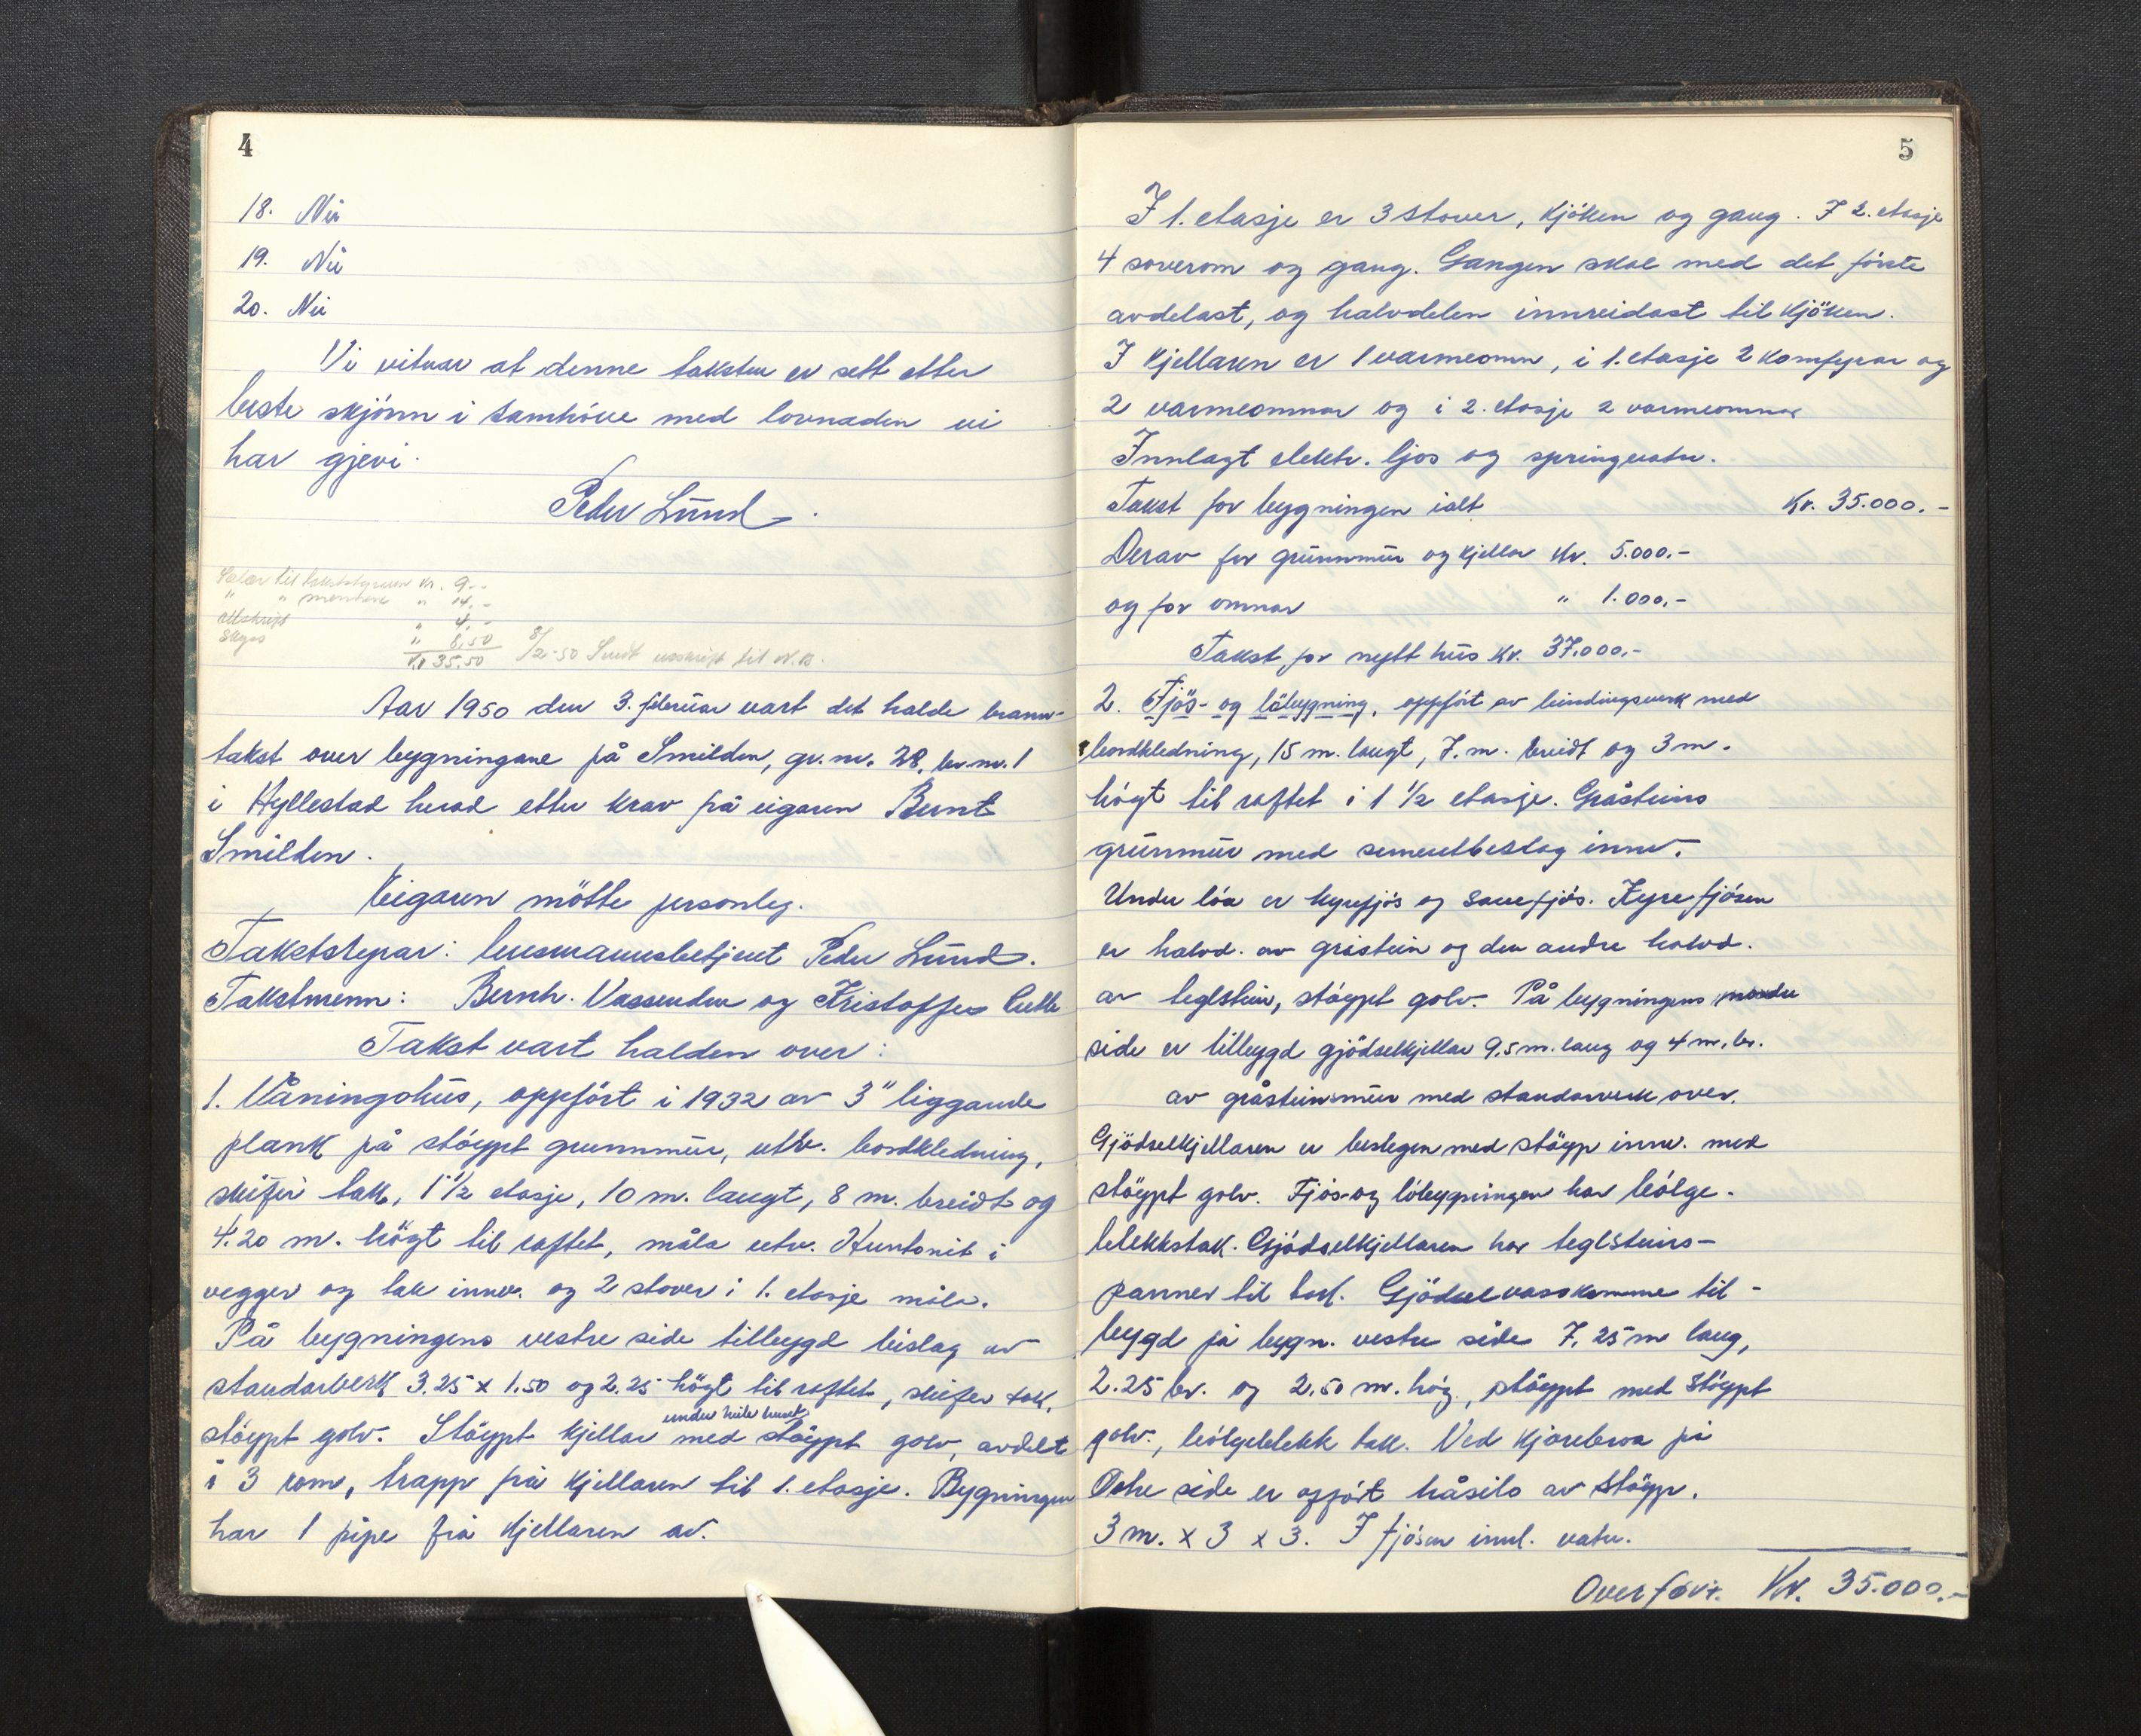 4
18. Nei
19. Nei
20. Nei
Vi vitnar at denne taksten er sett etter
beste skjönn i samhöve med lovnaden vi
har gjevi.
Peder Lund.
Salær til takststyraren kr. 9.-
" " mennene " 14.-
Utskrift " 4.-
Skyss " 8,50
Kr 35.50 8/2-50 Sendt utskrift til N.B.
Aar 1950 den 3. februar vart det halde brann-
takst over bygningane på Smilden, gr.nr. 28, br.nr. 1
i Hyllestad herad etter krav frå eigaren Bernt
Smilden.
Eigaren mötte personleg.
Takststyrar: lensmannsbetjent Peder Lund.
Takstmenn: Bernh. Vassenden og Kristoffer
Takst vart halden over:
1. Våningshus, oppfört i 1932 av 3" liggande
plank på stöypt grunnmur, utv. bordkledning,
skifer tak, 1 1/2 etasje, 10 m. langt, 8 m. breidt og
4.20 m. högt til raftet, måla utv. Huntonit i
vegger og tak innv. og 2 stover i 1. etasje måla.
På bygningens vestre side tilbygd bislag av
standarverk 3.25 x 1.50 og 2.25 högt til raftet, skifer tak,
under heile huset
stöypt golv. Stöypt kjellar med stöypt golv, avdelt
i 3 rom, trapp frå kjellaren til 1. etasje. Bygningen
har 1 pipe frå kjellaren av.
5
I 1. etasje er 3 stover, kjöken og gang. I 2. etasje
4 soverom og gang. Gangen skal med det förste
avdelast, og halvdelen innreidast til kjöken.
I kjellaren er 1 varmeomn, i 1. etasje 2 komfyrar og
2 varmeomnar og i 2. etasje 2 varmeomnar
Innlagt elektr. ljos og springvatn.
Takst for bygningen ialt Kr. 35.000.-
Derav for grunnmur og kjellar Kr. 5.000.-
og for omnar " 1.000.-
Takst for nytt hus kr. 37.000.-
2. Fjös- og löbygning, oppfört av bindingsverk med
bordkledning, 15 m. langt, 7. m. breidt og 3 m.
högt til raftet i 1 1/2 etasje. Gråsteins
grunnmur med sementbeslag innv.
Under löa er kyrfjös og sauefjös. Kyrefjösen
er halvd. av gråstein og den andre halvd.
av teglstein, stöypt golv. På bygningens nordre
side er tilbygd gjödselkjellar 9.5 m. lang og 4 m. br.
av gråsteinsmur med standarverk over.
Gjödselkjellaren er beslegen med stöyp innv. med
stöypt golv. Fjös- og löbygningen har bölge-
blekkstak. Gjödselkjellaren har teglsteins-
panner til tak. Gjödselvasskumme til-
bygd på bygn. vestre side 7.25 m lang,
2.25 br. og 2.50 m. hög, stöypt med stöypt
golv., bölgeblekk tak. Ved kjörebroa på
Östre side er oppfört håsilo av stöyp.
3 m. x 3 x 3. I fjösen innl. vatn.
Overfört. Kr. 35.000.-